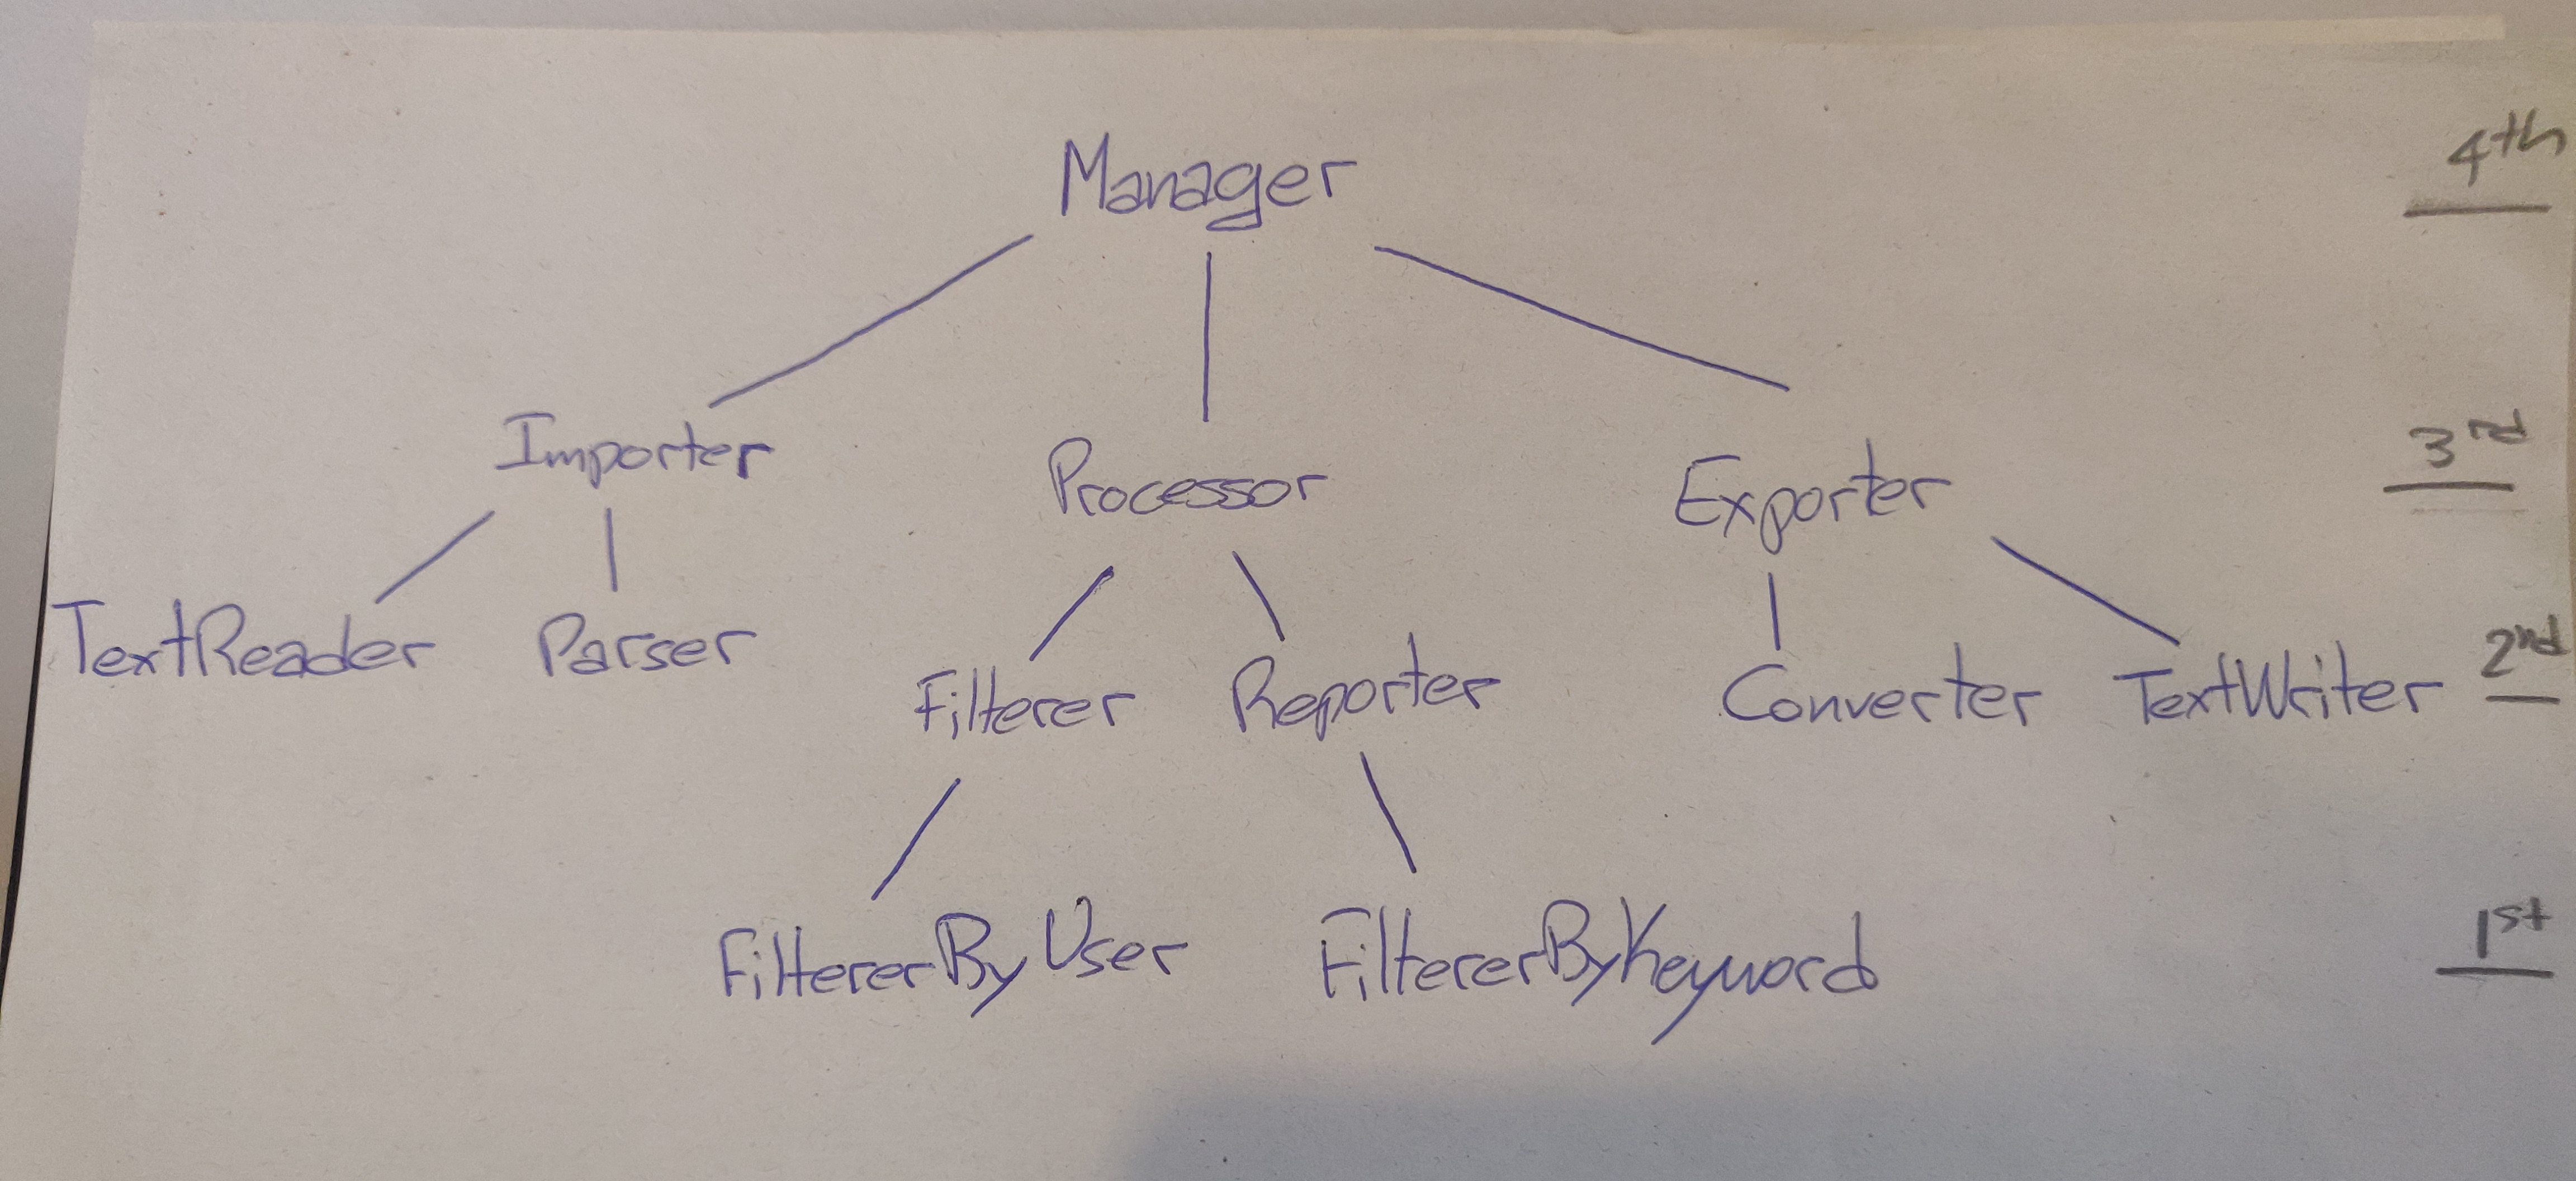 Manager 4th
Importer Processor Exporter 3rd
TextReader Parser Filterer Reporter Converter TextWriter 2nd
FiltererByUser FiltererByKeyword 1st